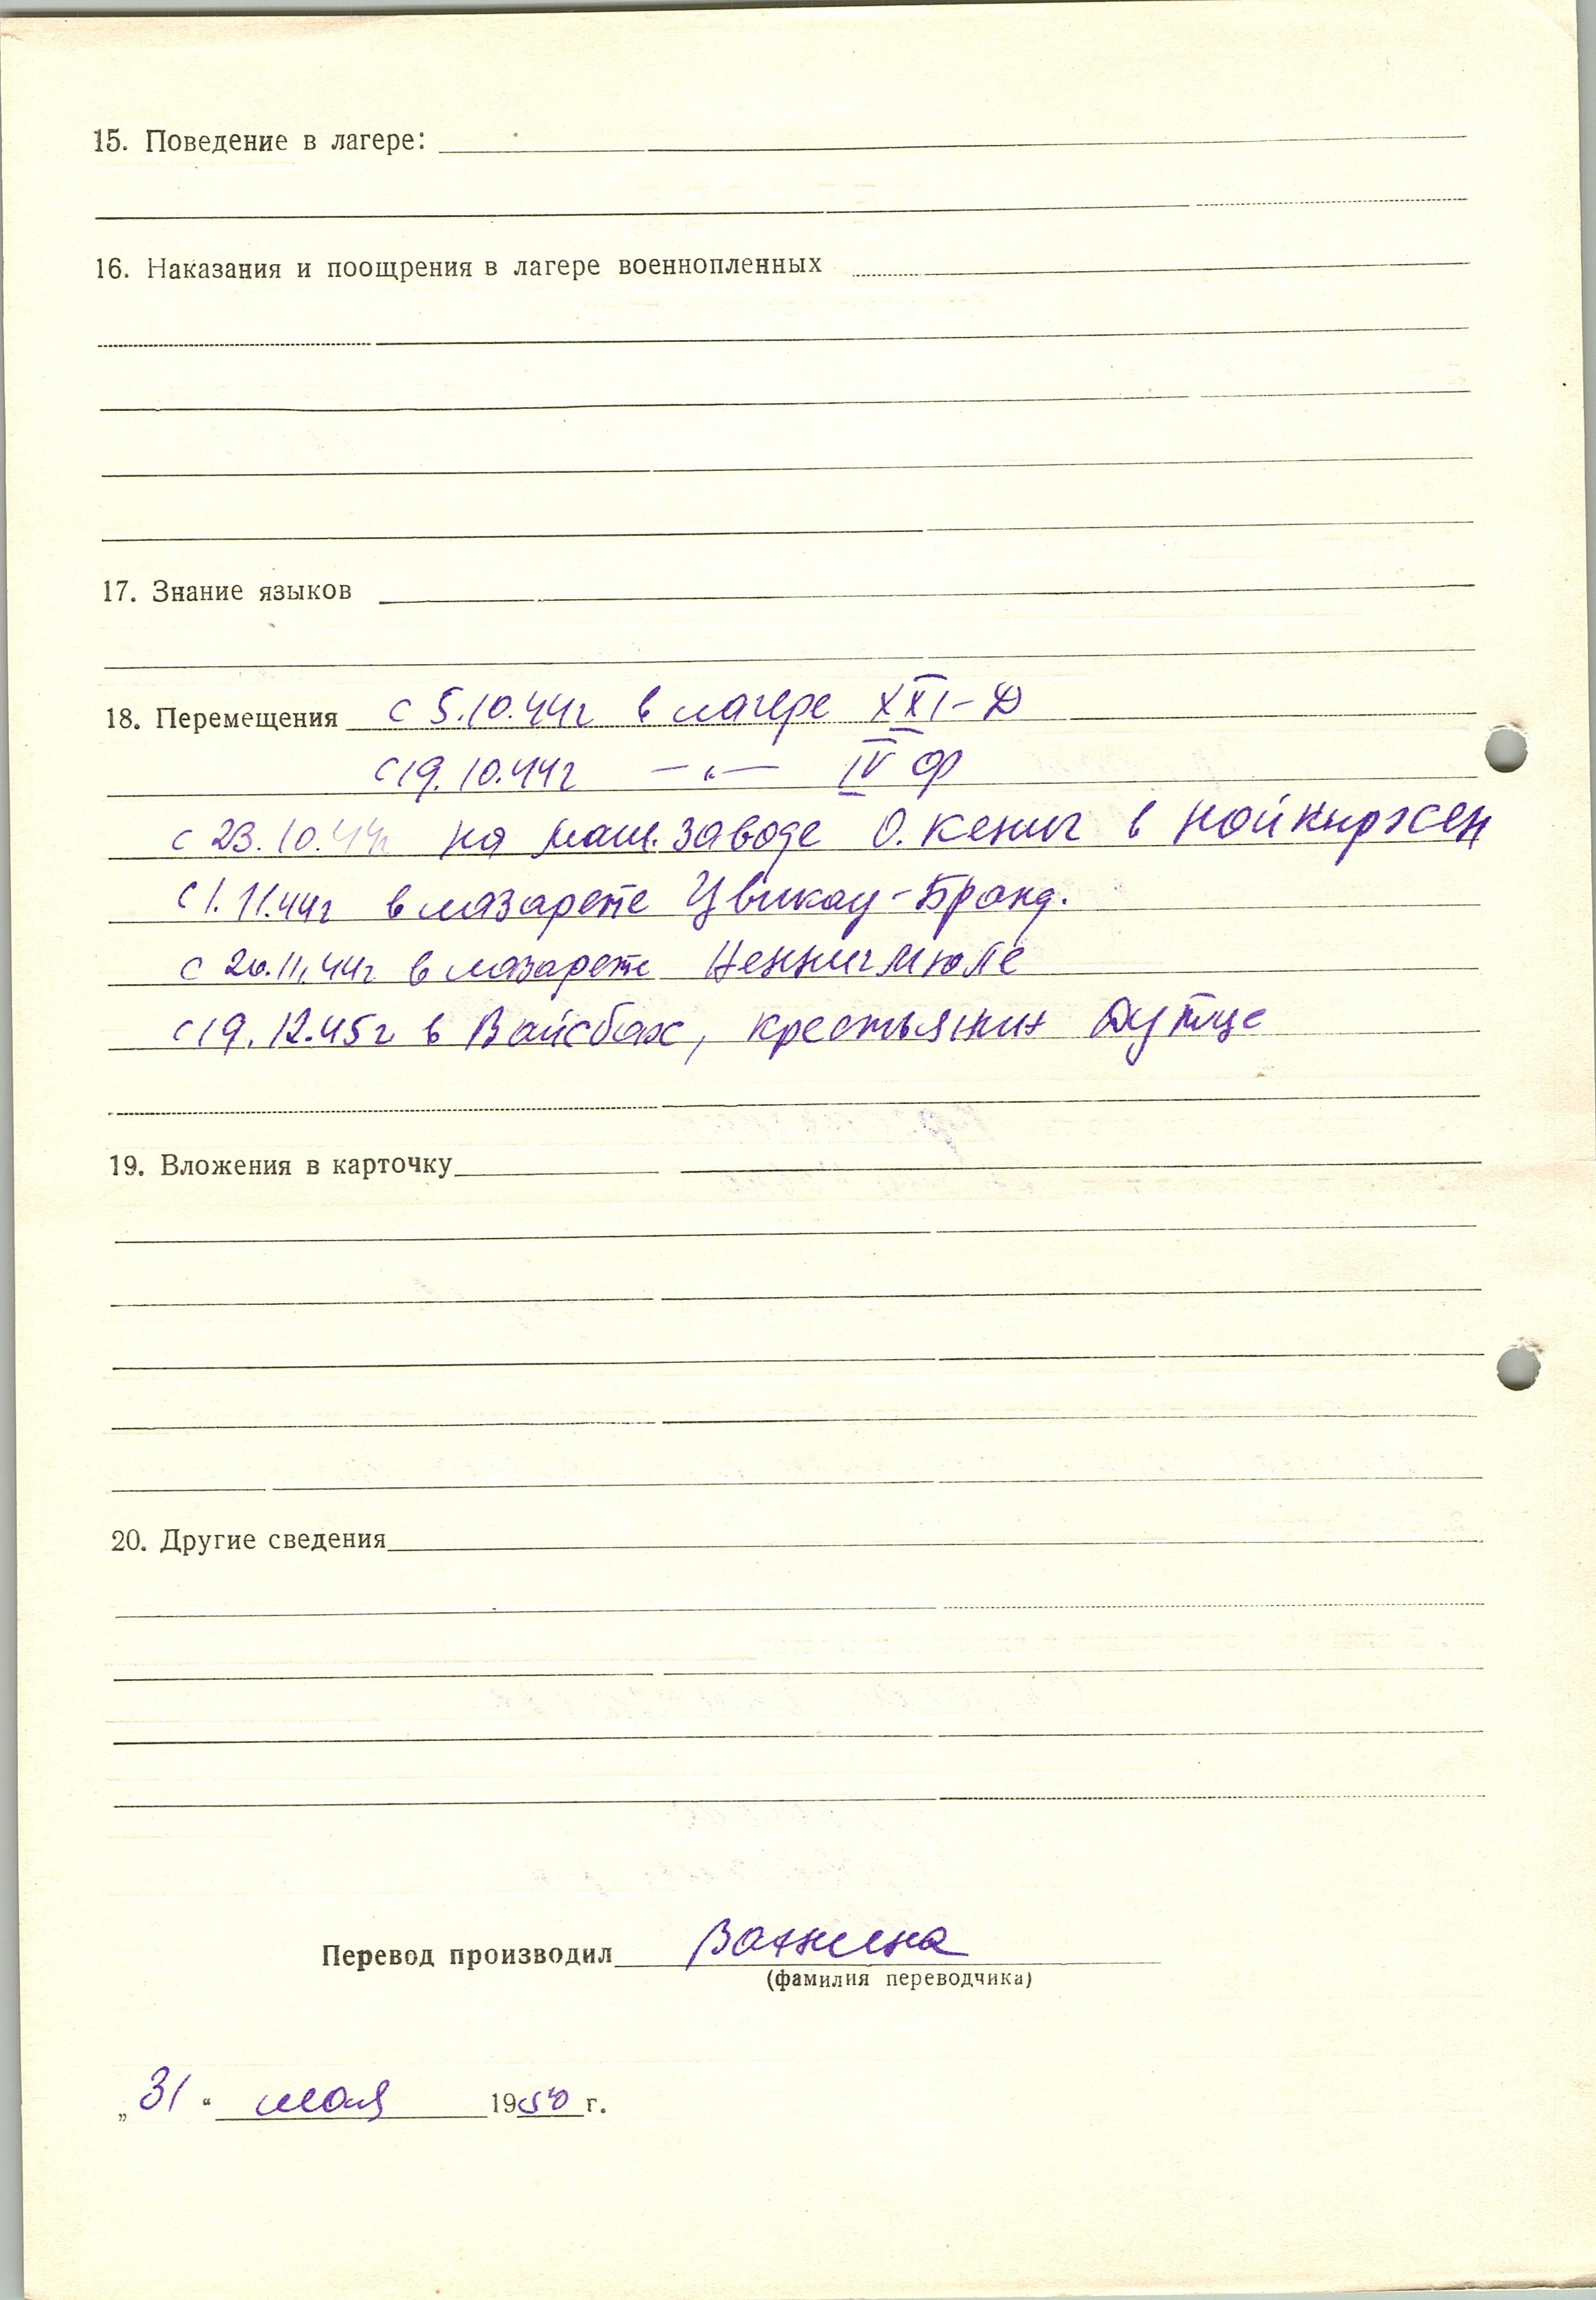 15. Поведение в лагере:
16. Наказания и поощрения в лагере военнопленных
17. Знание языков
18. Перемещения с 5.10.44г в лагере XXI-Д
с 19.10.44г —„— IV Ф
с 23.10.44г на маш. заводе О. Кениг в Нойкирхен
с 1.11.44г в лазарете Цвикау-Бранд.
с 20.11.44г в лазарете Хеннигмюле
с 19.12.45г в Вайсбах, крестьянин Дутце
19. Вложения в карточку
20. Другие сведения
Перевод производил
(фамилия переводчика)
„31“ мая 1950 г.